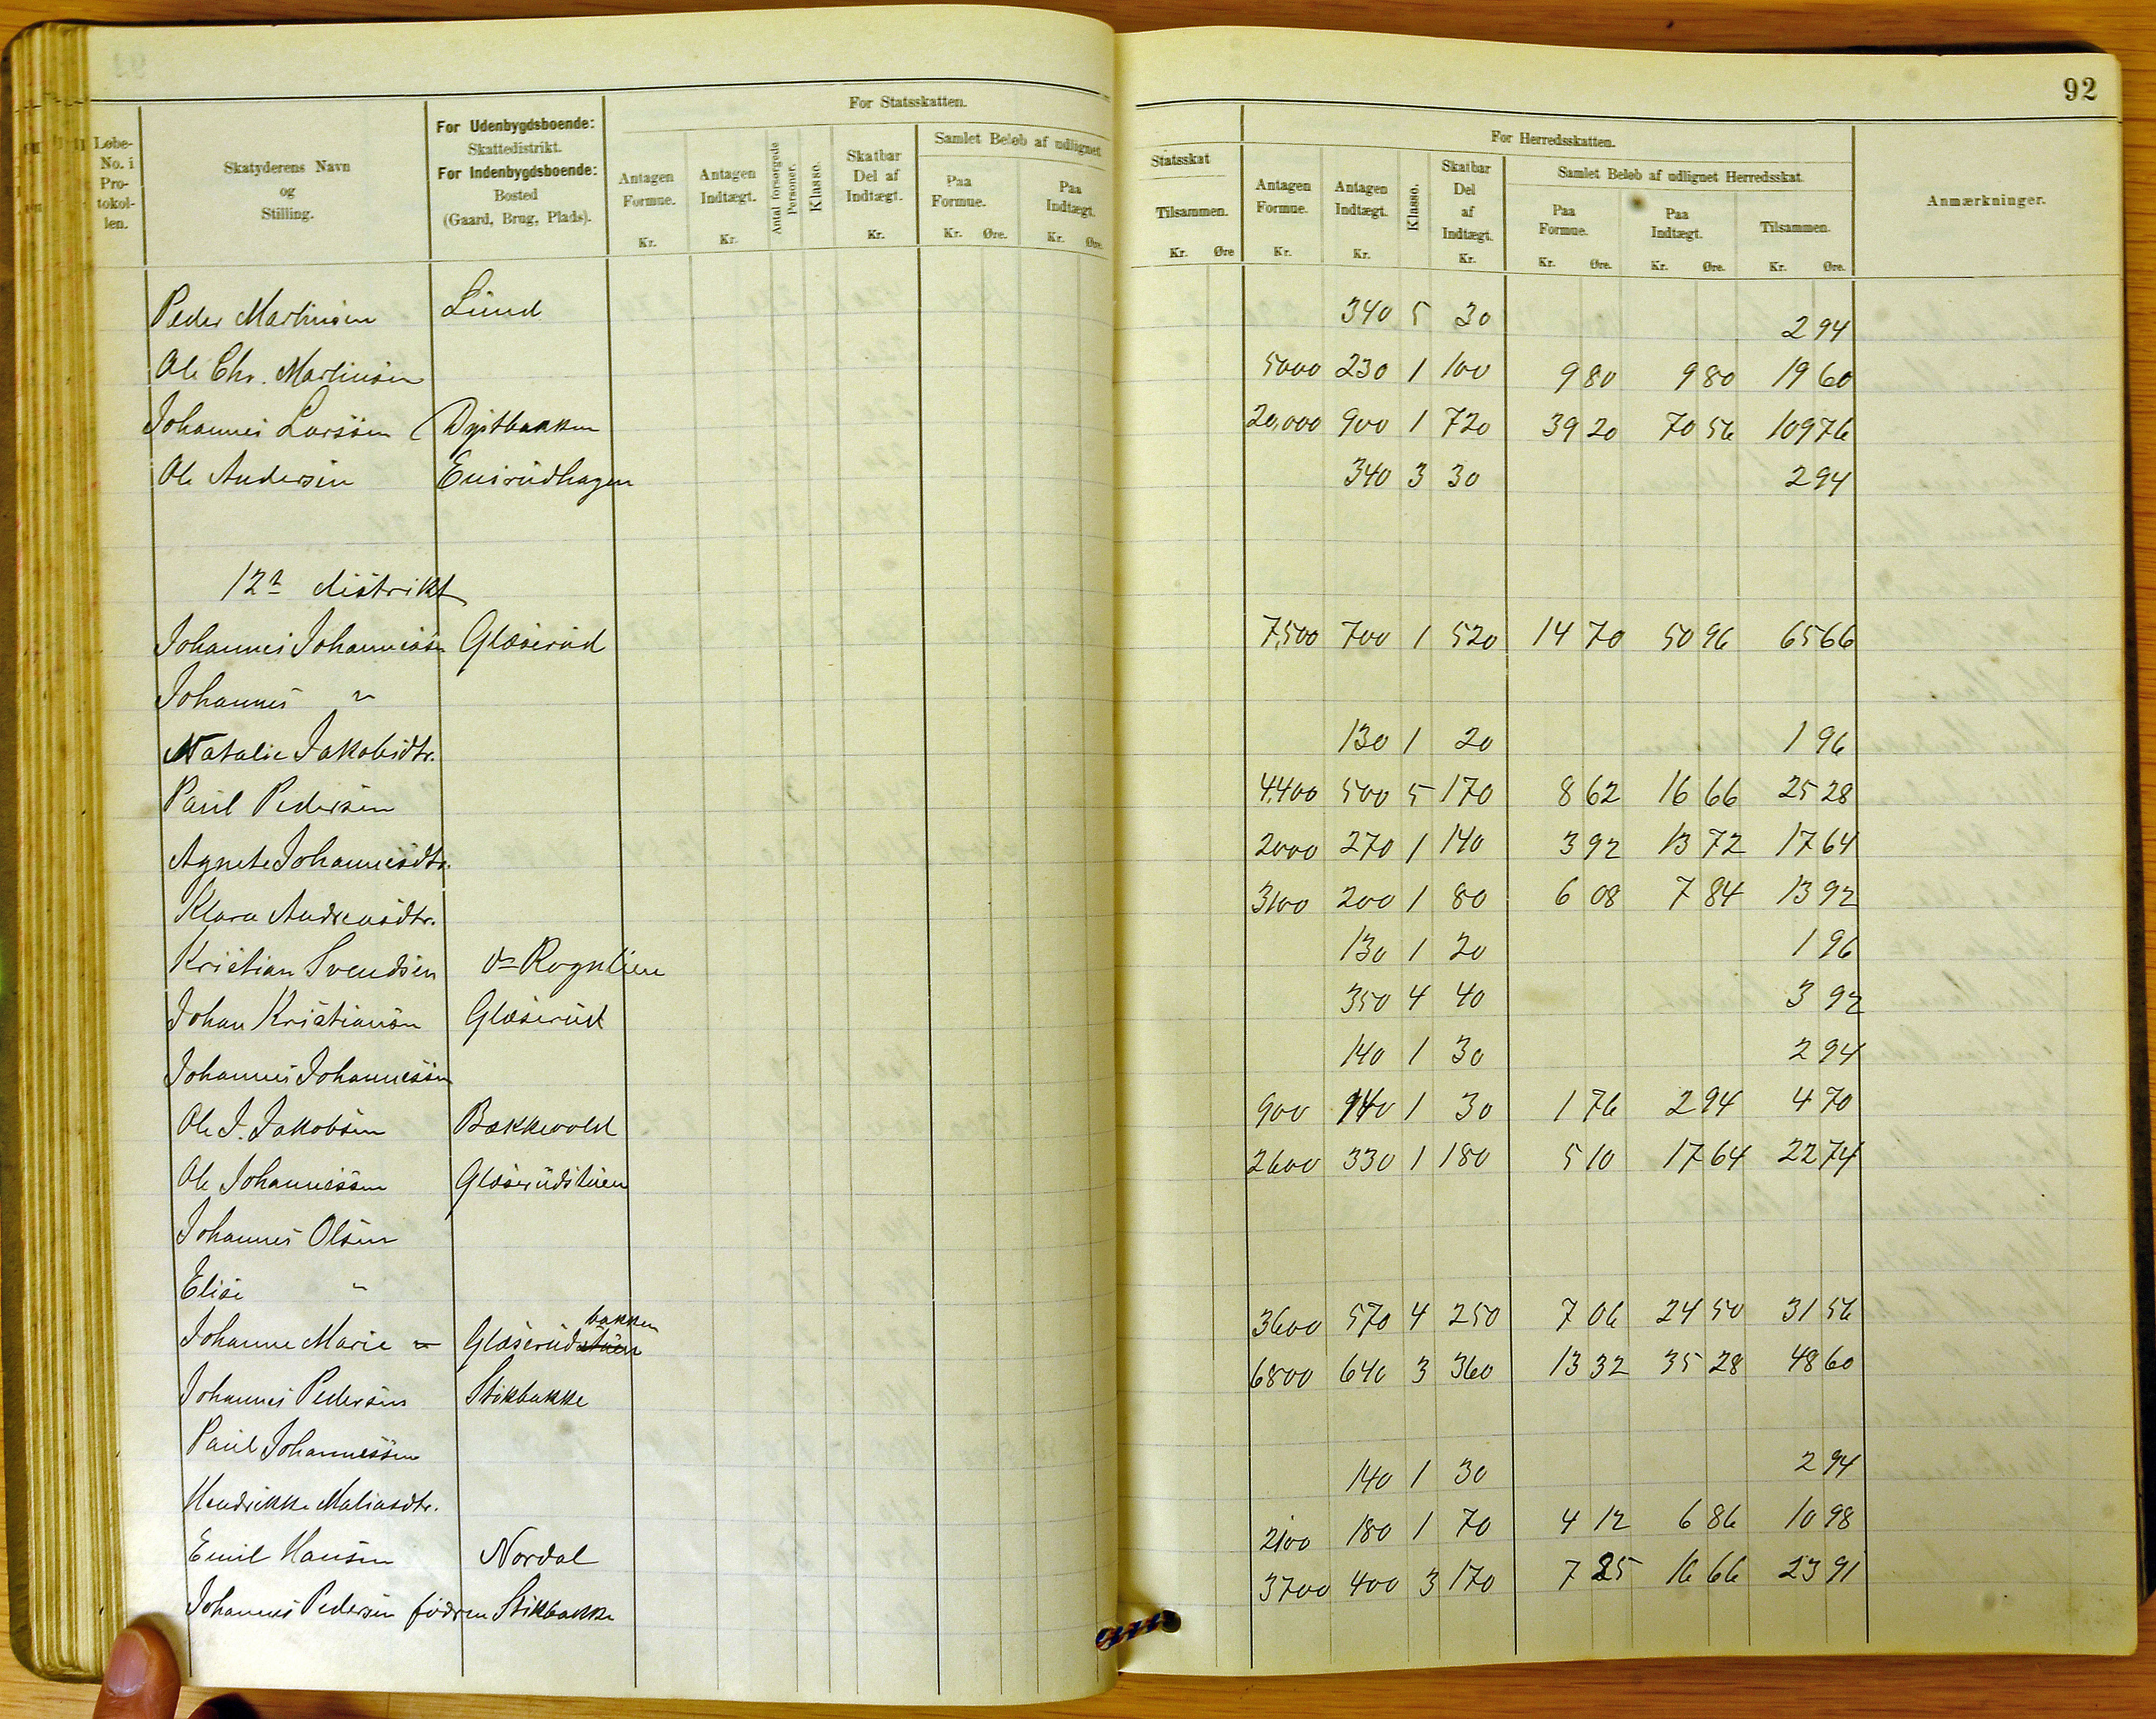 92
Løbe-No. i Pro-tokol-len.
Skatyderens Navn og Stilling.
For Udenbygdsboende: Skattedistrikt. For Indenbygdsboende: Bosted (Gaard, Brug, Plads).
For Statsskatten.
Antagen Formue. Kr.
Antagen Indtægt. Kr.
Antal forsørgede Personer.
Klasse.
Skatbar Del af Indtægt. Kr.
Samlet Beløb af udlignet
Paa Formue. Kr. Øre.
Paa Indtægt. Kr. Øre.
Statsskat
Tilsammen. Kr. Øre
For Herredsskatten.
Antagen Formue. Kr.
Antagen Indtægt. Kr.
Klasse.
Skatbar Del af Indtægt. Kr.
Samlet Beløb af udlignet Herredsskat.
Paa Formue. Kr. Øre.
Paa Indtægt. Kr. Øre.
Tilsammen. Kr. Øre.
Anmærkninger.
Peder Martinsen Lund 340 5 30 2 94
Ole Chr. Martinsen 5000 230 1 100 9 80 9 80 19 60
Johannes Larssen Dystbakken 20,000 900 1 720 39 20 70 56 109 76
Ole Andersen Ensrudhagen 340 3 30 2 94
12 distrikt
Johannes Johannessen Glæserud 7,500 700 1 520 14 70 50 96 65 66
Johannes "
Natalie Jakobsdtr. 130 1 20 1 96
Paul Pedersen 4,400 500 5 170 8 62 16 66 25 28
Agnete Johannesdtr. 2000 270 1 140 3 92 13 72 17 64
Klara Andreasdtr. 3100 200 1 80 6 08 7 84 13 92
Kristian Svendsen Rognlien 130 1 20 1 96
Johan Kristiansen Glæserud 350 4 40 3 92
Johannes Johannessen 140 1 30 2 94
Ole J. Jakobsen Bækkevold 900 140 1 30 1 76 2 94 4 70
Ole Johannessen Glæserudstuen 2600 330 1 180 5 10 17 64 22 74
Johannes Olsen
Elise "
bakken
Johanne Marie " Glæserudstuen 3600 570 4 250 7 06 24 50 31 56
Johannes Pedersen Stikbakke 6800 640 3 360 13 32 35 28 48 60
Paul Johannessen
Hendrikke Matiasdtr. 140 1 30 2 94
Emil Hansen Nordal 2100 180 1 70 4 12 6 86 10 98
Johannes Pedersen fødren Stikbakke 3700 400 3 170 7 25 16 66 23 91